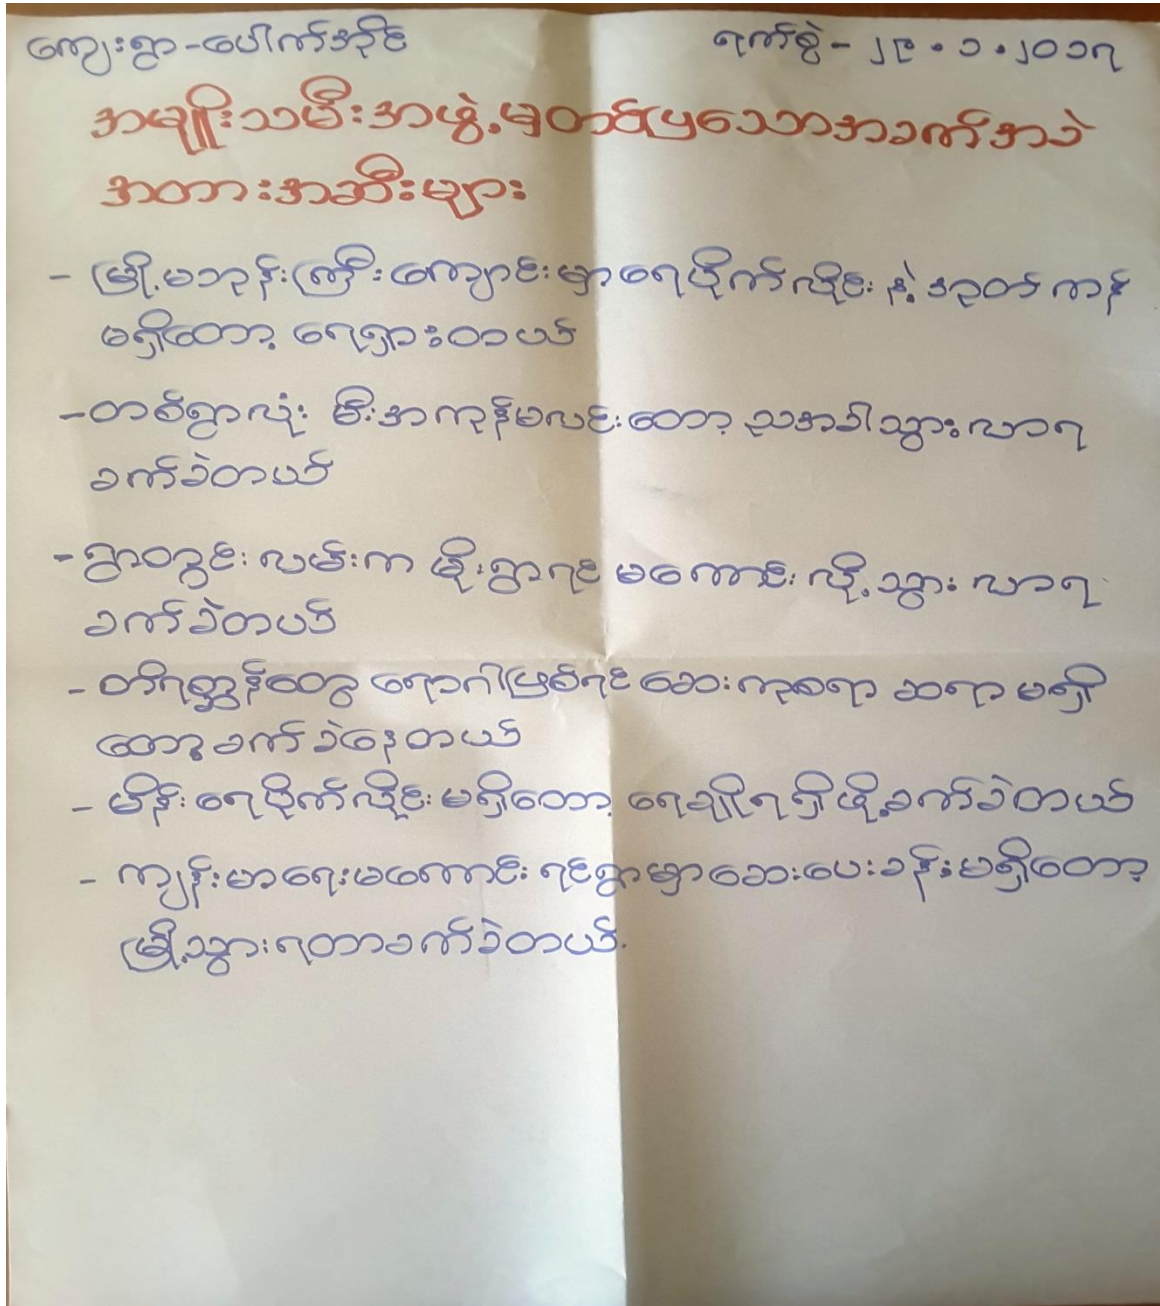 ကျေးရွာ-ပေါက်အိုင် ရက်စွဲ- ၂၉.၁.၂၀၁၇
အမျိုးသမီးအဖွဲ့မှတင်ပြသောအခက်အခဲ
အတားအဆီးများ
- မြို့မဘုန်းကြီးကျောင်းမှာရေပိုက်လိုင်းနဲ့အုတ်ကန်
မရှိတော့ ရေရှားတယ်
-တစ်ရွာလုံး မီးအကုန်မလင်းတော့ ညအခါသွားလာရ
ခက်ခဲတယ်
-ရွာတွင်းလမ်းက မိုးရွာရင် မကောင်းလို့သွားလာရ
ခက်ခဲတယ်
- တိရစ္ဆာန်တွေ ရောဂါဖြစ်ရင် ဆေးကုစရာ ဆရာမရှိ
တော့ခက်ခဲနေတယ်
- မိန်းရေပိုက်လိုင်းမရှိတော့ ရေချိုရရှိဖို့ခက်ခဲတယ်
- ကျန်းမာရေးမကောင်းရင်ရွာမှာဆေးပေးခန်းမရှိတော့
မြို့သွားရတာခက်ခဲတယ်.